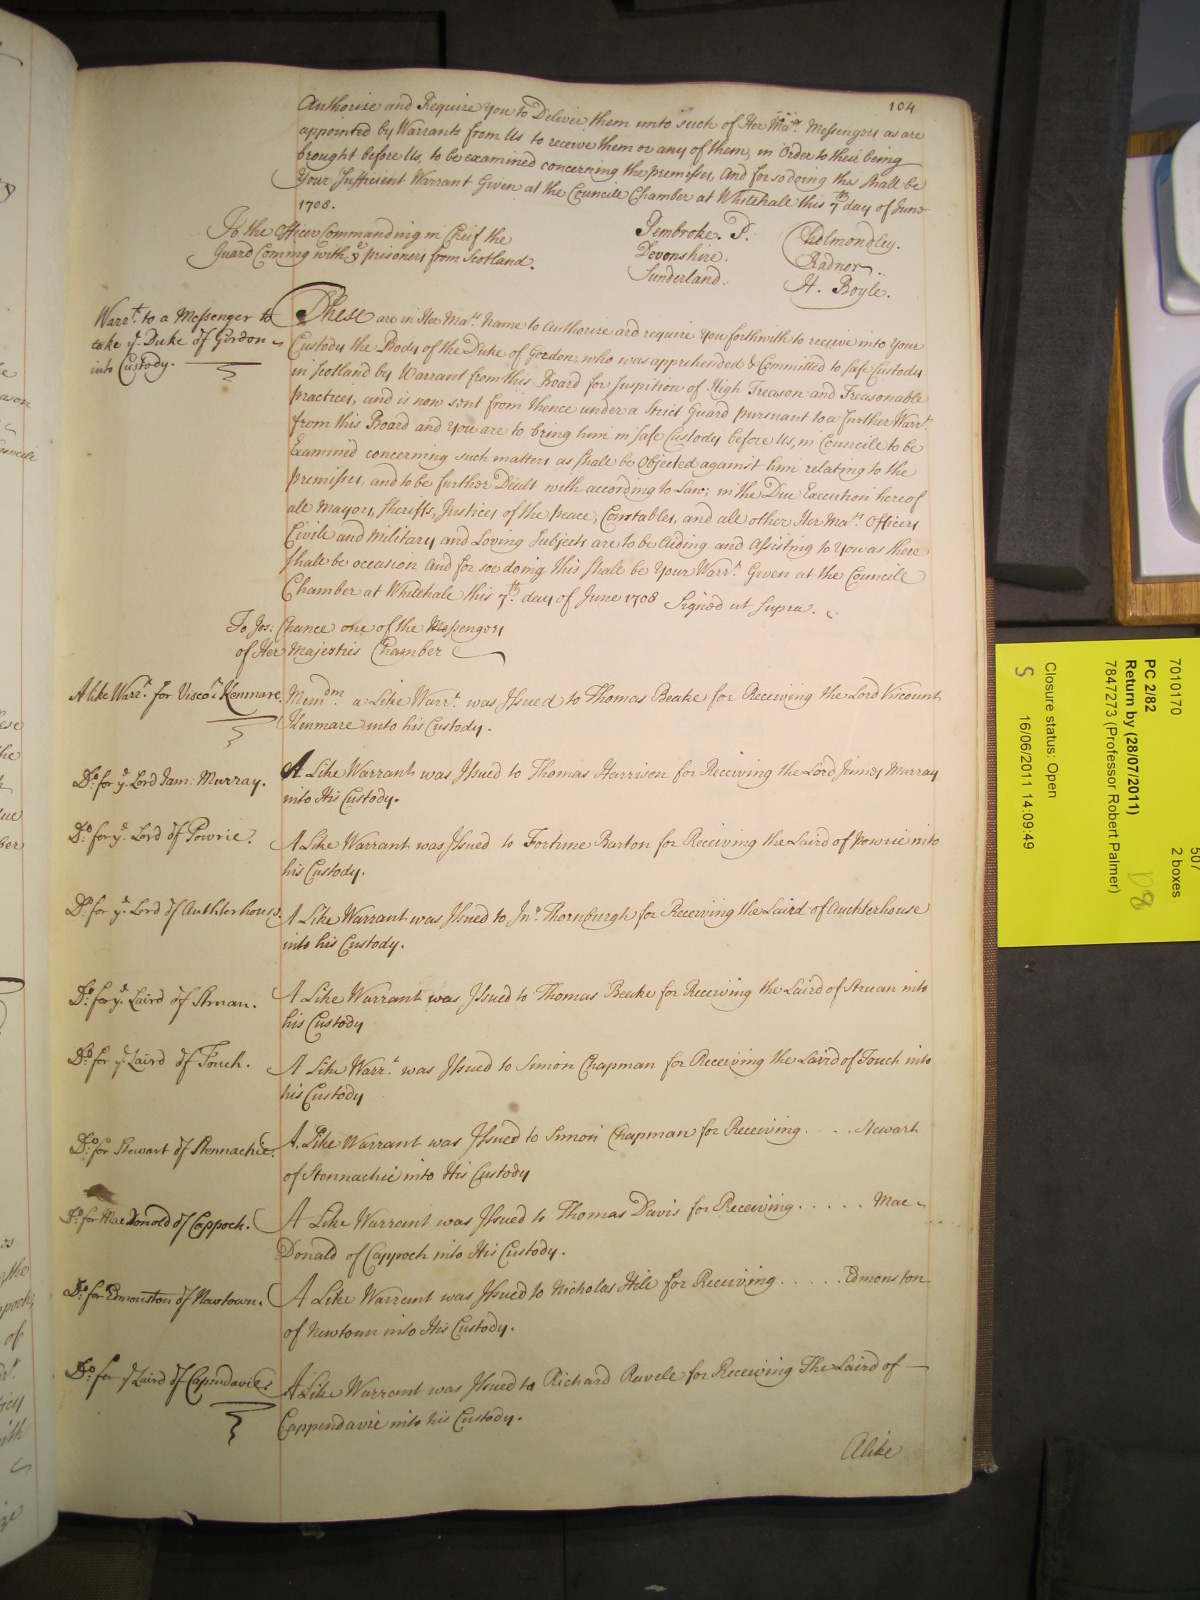 104
Authorize and Require You to Deliver them unto such of Her Ma.ts Messengers as are
appointed by Warrants from Us to receive them or any of them, in Order to their being
brought before Us, to be examined concerning the premisses, And for so doing this shall be
Your Sufficient Warrant Given at the Councill Chamber at Whitehale this 7th day of June
1708.
To the Officer Commanding in Cheif the
Guard Coming with ye prisoners from Scotland.
Pembroke. P.
Devonshire.
Sunderland.
Cholmondley.
Radnor.
H. Boyle.
Warrt. to a Messenger to
take ye Duke of Gordon
into Custody.
These are in Her Mats. Name to Authorize and require You forthwith to receive into Your
Custody the Body of the Duke of Gordon, who was apprehended & Committed to safe Custody
in Scotland by Warrant from this Board for Suspition of High Treason and Treasonable
practices, and is now sent from thence under a Strict Guard pursuant to a further Warrt.
from this Board and You are to bring him in safe Custody before Us, in Councile to be
Examined concerning such matters as shall be Objected against him relating to the
premisses, and to be further Dealt with according to Law; in the Due Execution hereof
all Mayors, Sheriffs, Justices of the peace, Constables, and all other Her Mats. Officers
Civile and Military and Loving Subjects are to be Aiding and Assisting to You as there
shall be occasion And for soe doing this shall be Your Warrt. Given at the Councile
Chamber at Whitehale this 7th. day of June 1708 Signed ut Supra.
To Jos: Chance one of the Messengers
of Her Majesties Chamber
A like Warrt. for Viscot. Kenmare.
Memdm. a Like Warrt. was Issued to Thomas Beake for Receiving the Lord Viscount
Kenmare into his Custody.
Do. for ye. Lord Jam: Murray.
A Like Warrant was Issued to Thomas Harrison for Receiving the Lord James Murray
into His Custody.
Do. for ye. Lord of Powrie.
A Like Warrant was Issued to Fortune Barton for Receiving the Laird of Powrie into
his Custody.
Do. for ye. Lord of Authterhouse.
A Like Warrant was Issued to Jno. Thornburgh for Receiving the Laird of Auchterhouse
into his Custody.
Do. for ye. Laird of Struan.
A Like Warrant was Issued to Thomas Beake for Receiving the Laird of Struan into
his Custody
Do. for ye. Laird of Touch.
A Like Warrt. was Issued to Simon Chapman for Receiving the Laird of Touch into
his Custody
Do. for Stewart of Stennachie.
A Like Warrant was Issued to Simon Chapman for Receiving . . . . Stewart
of Stennachie into His Custody
Do. for MacDonold of Cappoch.
A Like Warrant was Issued to Thomas Davis for Receiving . . . . . Mac-
Donald of Cappoch into His Custody.
Do. for Edmonston of Newtown.
A Like Warrant was Issued to Nicholas Hile for Receiving . . . . . Edmonston
of Newtoun into His Custody.
Do. for ye Laird of Capendavies
A Like Warrant was Issued to Richard Ravele for Receiving The Laird of
Cappendavie into his Custody.
Alike
7010170
507
2 boxes
PC 2/82
Return by (28/07/2011)
7847273 (Professor Robert Palmer)
D8
Closure status: Open
S
16/06/2011 14:09:49